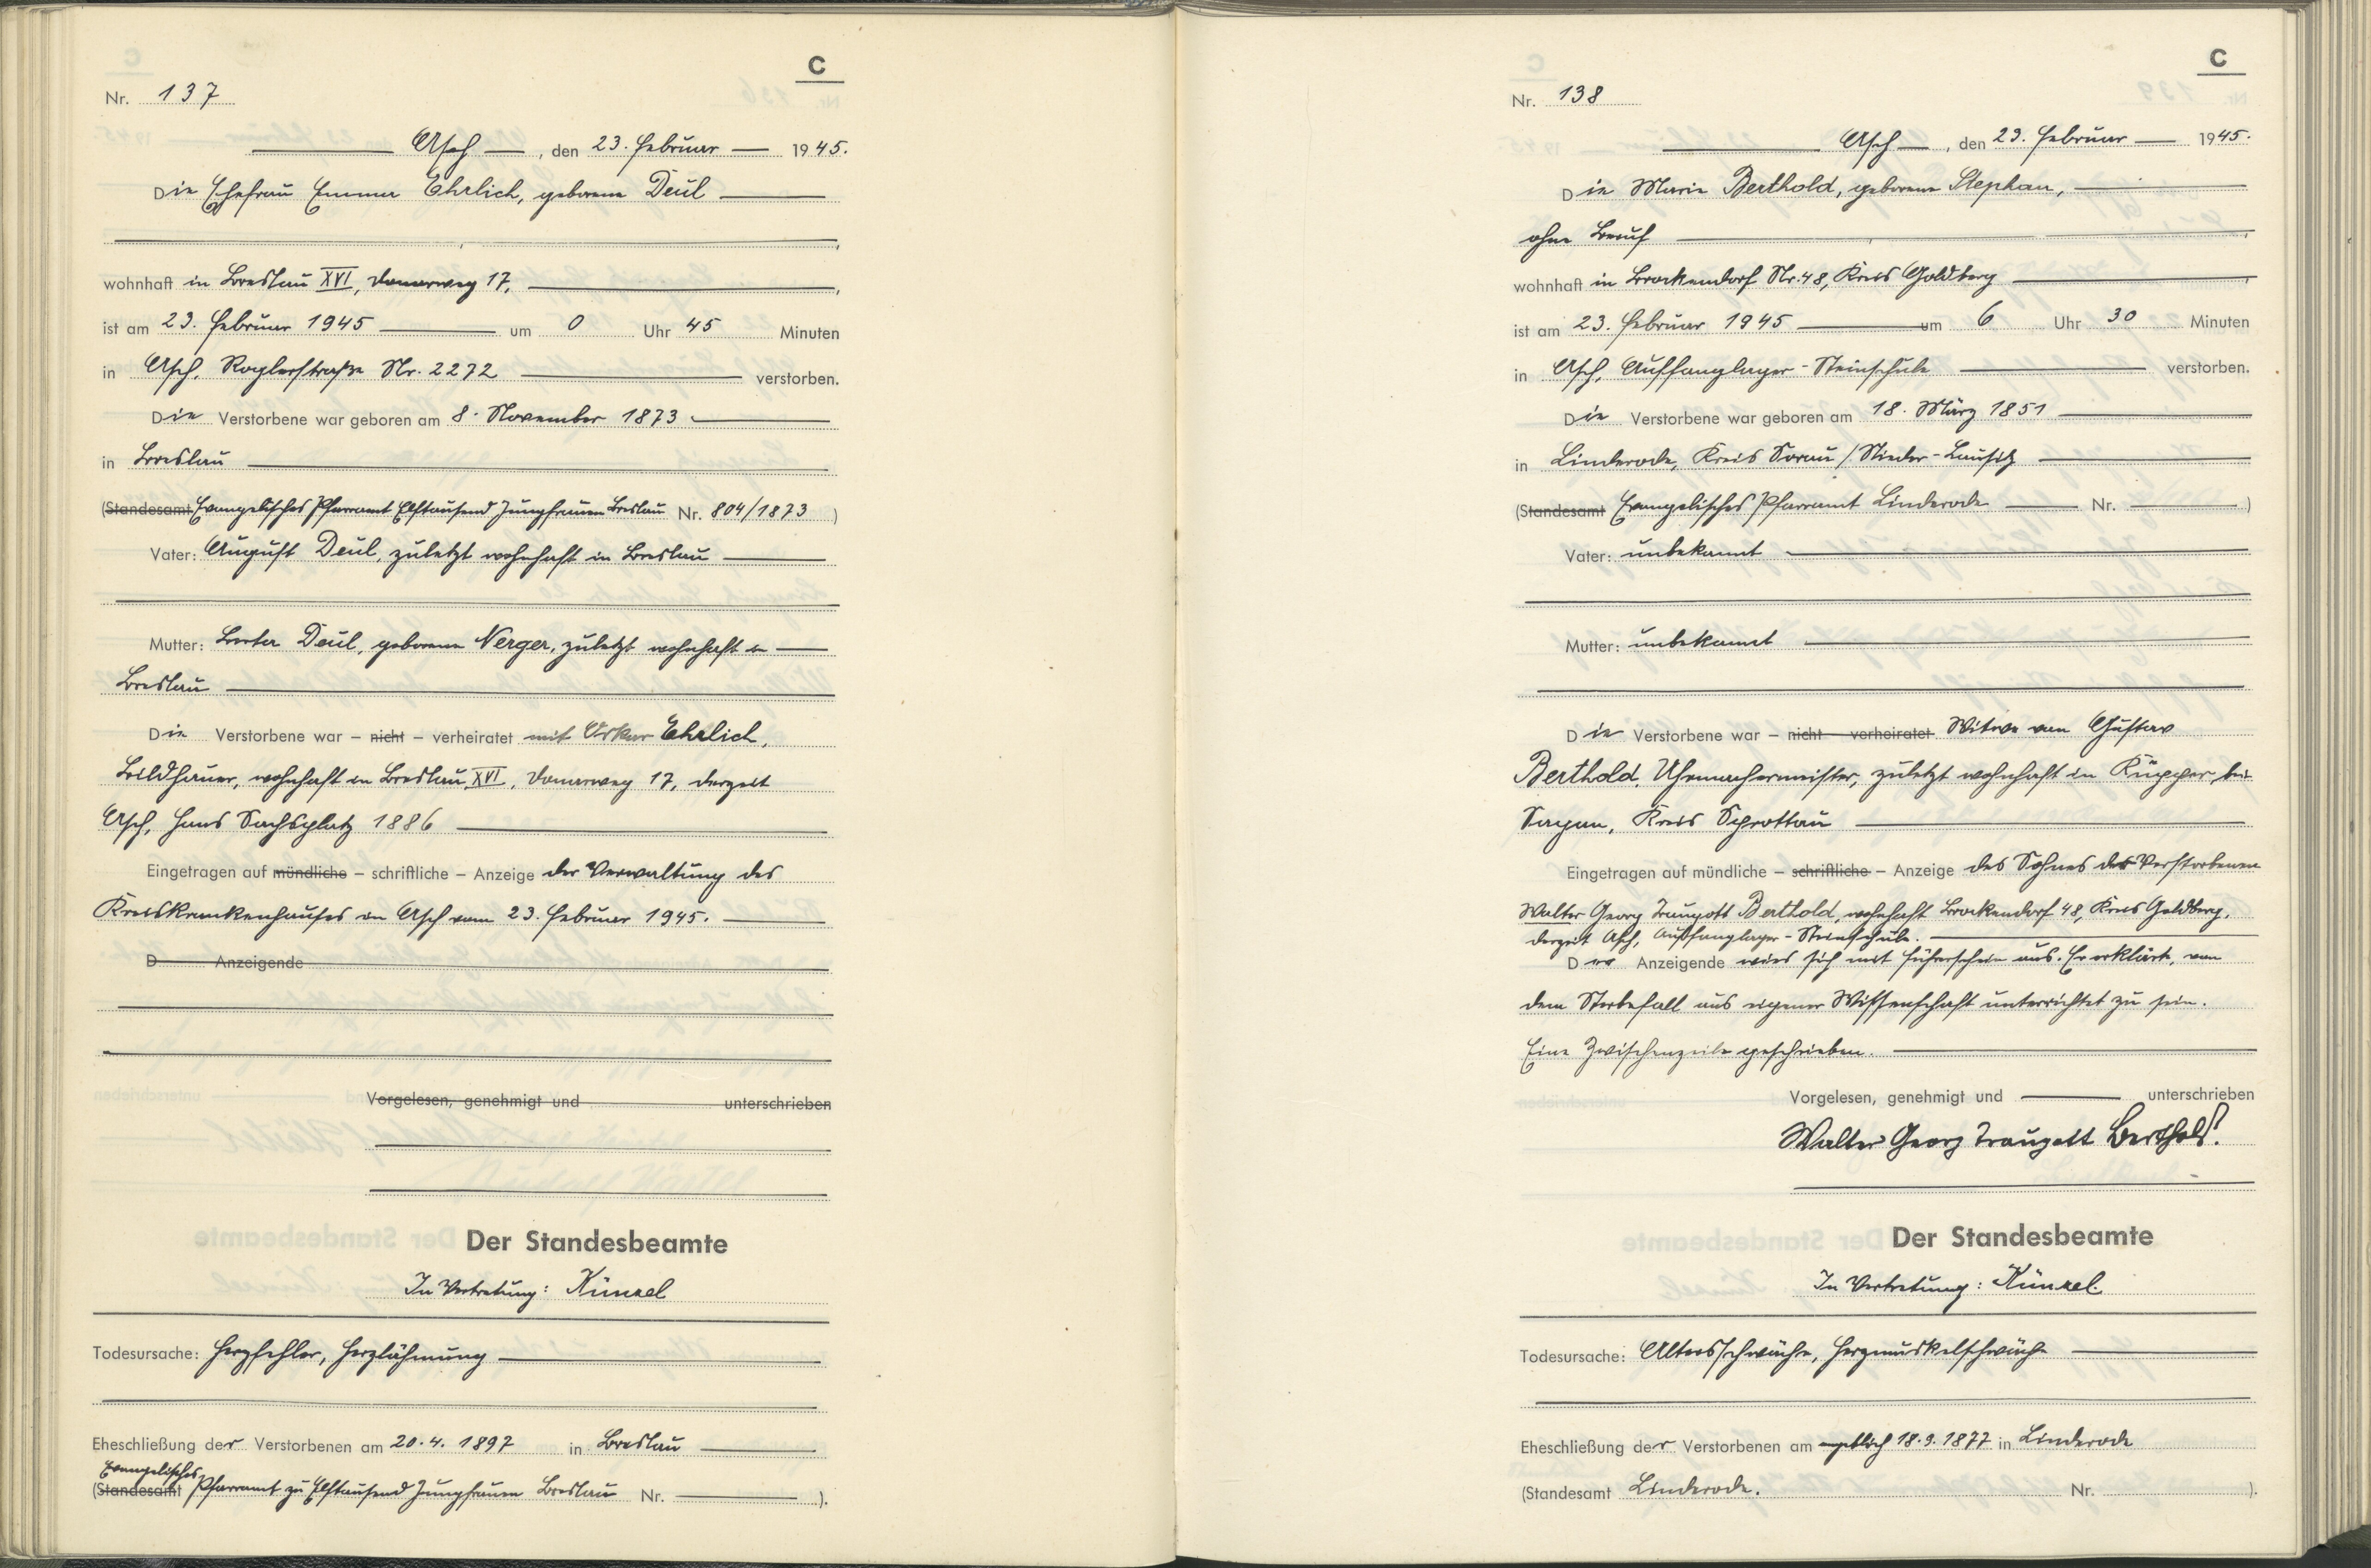 C
Nr. 137
Asch, den 23. Februar 1945.
Die Ehefrau Emma Ehrlich, geborene Deul
wohnhaft in Breslau XVI, Donarweg 17,
ist am 23. Februar 1945 um 0 Uhr 45 Minuten
in Asch, Roglerstraße Nr. 2272 verstorben.
Die Verstorbene war geboren am 8. November 1873
in Breslau
(Standesamt Evangelisches Pfarramt Elftausend Jungfrauen Breslau Nr. 804/1873)
Vater: August Deul, zuletzt wohnhaft in Breslau
Mutter: Berta Deul, geborene Nerger, zuletzt wohnhaft in
Breslau
Die Verstorbene war – nicht – verheiratet mit Oskar Ehrlich,
Bildhauer, wohnhaft in Breslau XVI, Donarweg 17, derzeit
Asch, Hans Sachsplatz 1886
Eingetragen auf mündliche – schriftliche – Anzeige der Verwaltung des
Kreiskrankenhauses in Asch vom 23. Februar 1945.
D Anzeigende
Vorgelesen, genehmigt und unterschrieben
Der Standesbeamte
In Vertretung: Künzel
Todesursache: Herzfehler, Herzlähmung
Eheschließung der Verstorbenen am 20.4.1897 in Breslau
Evangelisches
(Standesamt Pfarramt zu Elftausend Jungfrauen Breslau Nr. ).
C
Nr. 138
Asch, den 23. Februar 1945.
Die Marie Berthold, geborene Stephan,
ohne Beruf
wohnhaft in Brockendorf Nr. 48, Kreis Goldberg
ist am 23. Februar 1945 um 6 Uhr 30 Minuten
in Asch, Auffanglager-Steinschule verstorben.
Die Verstorbene war geboren am 18. März 1851
in Linderode, Kreis Sorau / Nieder-Lausitz
(Standesamt Evangelisches Pfarramt Linderode Nr. )
Vater: unbekannt
Mutter: unbekannt
Die Verstorbene war – nicht verheiratet Witwe von Gustav
Berthold, Uhrmachermeister, zuletzt wohnhaft in Küpper, bei
Sagan, Kreis Sprottau
Eingetragen auf mündliche – schriftliche – Anzeige des Sohnes der Verstorbenen
Walter Georg Traugott Berthold, wohnhaft Brockendorf 48, Kreis Goldberg,
derzeit Asch, Auffanglager-Steinschule.
Der Anzeigende wies sich mit Führerschein aus. Er erklärte, von
dem Sterbefall aus eigener Wissenschaft unterrichtet zu sein.
Eine Zwischenzeile geschrieben.
Vorgelesen, genehmigt und unterschrieben
Walter Georg Traugott Berthold.
Der Standesbeamte
In Vertretung: Künzel.
Todesursache: Altersschwäche, Herzmuskelschwäche
Eheschließung der Verstorbenen am angeblich 18.9.1877 in Linderode
(Standesamt Linderode. Nr. ).